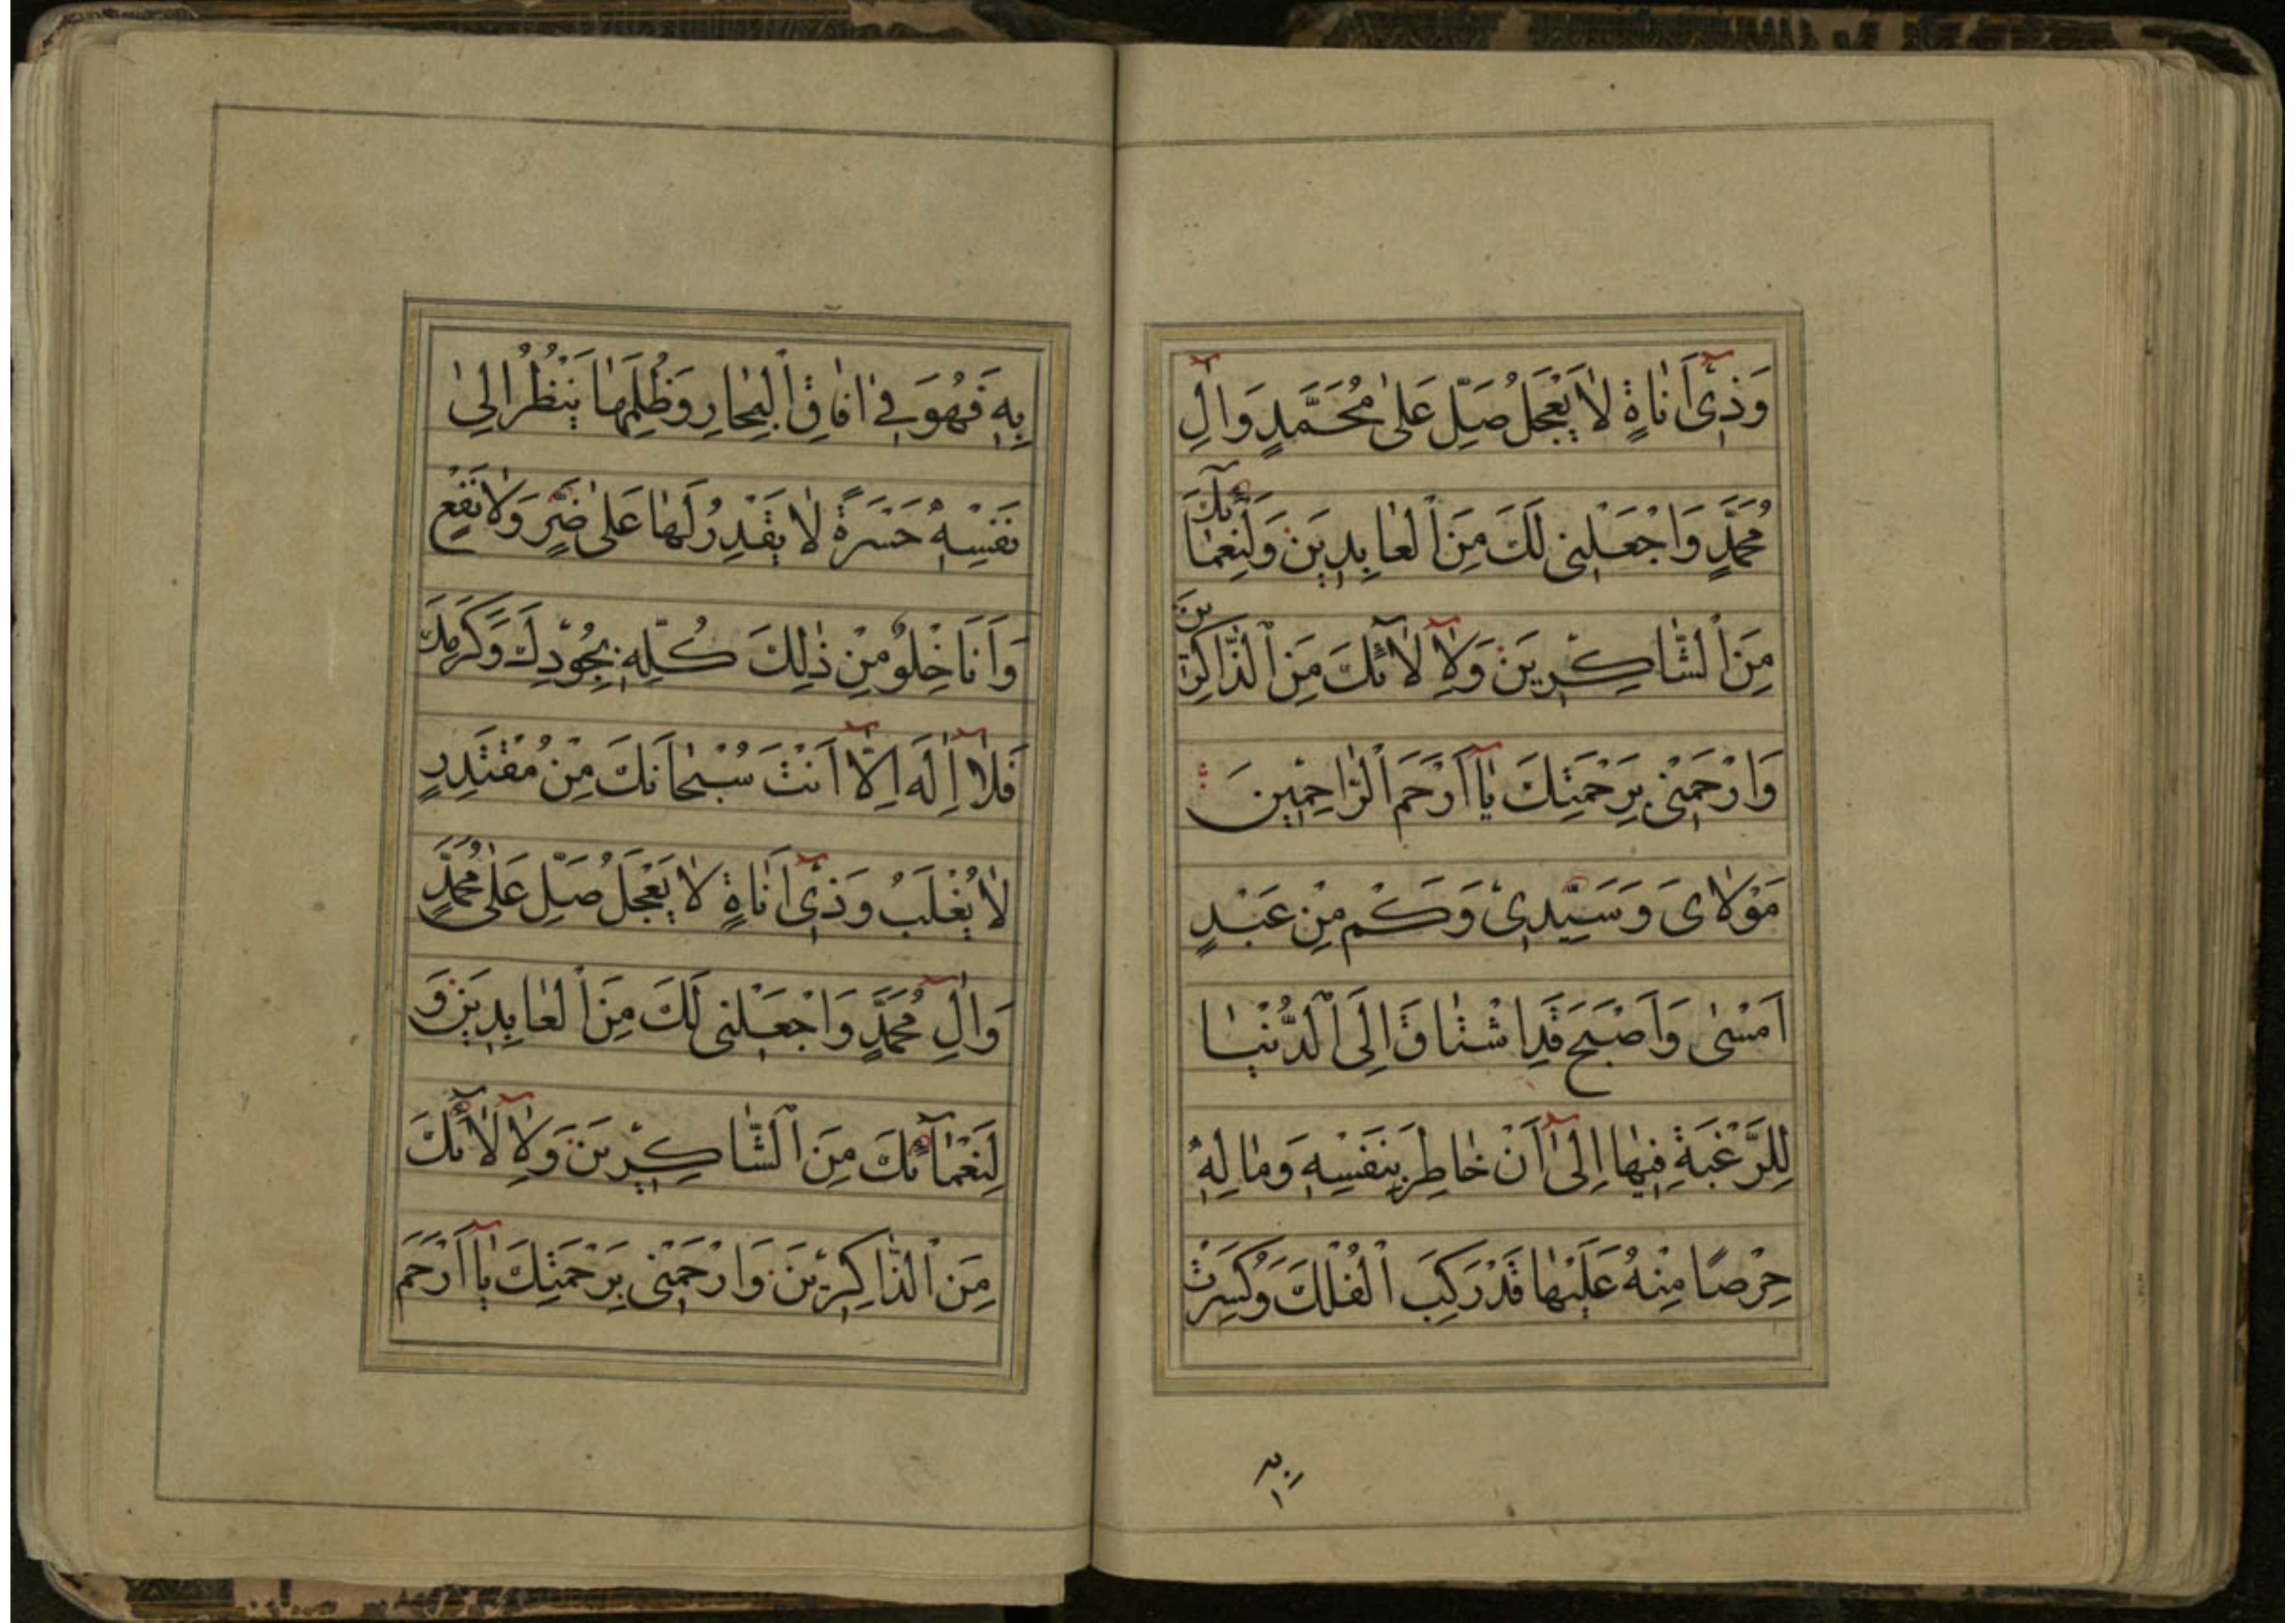 وَذِىٓ اَنٰاةٍ لٰا يَعْجَلُ صَلِّ عَلىٰ مُحَمَّدٍ وَاٰلِ
مُحَمَّدٍ وَاجْعَلْنِى لَكَ مِنَ الْعٰابِدِيَن وَلِنَعْمٰآئِكَ
مِنَ الشّٰاكِرِيَن وَلِاٰلٰآئِكَ مِنَ الذّٰاكِرِينَ
وَارْحَمْنِى بِرَحْمَتِكَ يٰآ اَرْحَمَ الرّٰاحِمِينَ
مَوْلٰاىَ وَسَيِّدِىْ وَكَمْ مِنْ عَبْدٍ
اَمْسٰى وَاَصْبَحَ قَدِ اشْتٰاقَ اِلَى الدُّنْيٰا
لِلرَّغْبَةِ فِيهٰا اِلىٰٓ اَنْ خٰاطَرَ بِنَفْسِهِ وَمٰالِهِ
حِرْصًا مِنْهُ عَلَيْهٰا قَدْ رَكِبَ الْفُلْكَ وَكُسِرَتْ
به
بِهِ فَهُوَ فِىٓ اٰفٰاقِ الْبِحٰارِ وَظُلَمِهٰا يَنْظُرُ اِلىٰ
نَفْسِهِ حَسْرَةً لٰا يَقْدِرُ لَهٰا عَلىٰ ضَرٍّ وَلٰا نَفْعٍ
وَاَنَا خِلْوٌ مِنْ ذٰلِكَ كُلِّهِ بِجُوْدِكَ وَكَرَمِكَ
فَلٰآ اِلَهَ اِلّٰآ اَنْتَ سُبْحٰانَكَ مِنْ مُقْتَدِرٍ
لٰا يُغْلَبُ وَذِىٓ اَنٰاةٍ لٰا يَعْجَلُ صَلِّ عَلىٰ مُحَمَّدٍ
وَاٰلِ مُحَمَّدٍ وَاجْعَلْنِى لَكَ مِنَ الْعٰابِدِيَن وَ
لِنَعْمٰآئِكَ مِنَ الشّٰاكِرِيْنَ وَلِاٰلٰآئِكَ
مِنَ الذّٰاكِرِيْنَ وَارْحَمْنِى بِرَحْمَتِكَ يٰآ اَرْحَمَ